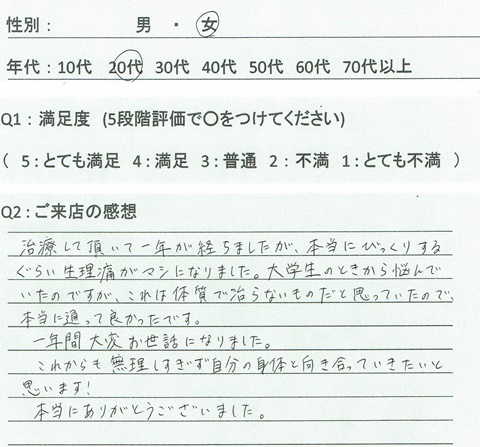 性別： 男 ・ 女
年代：10代 20代 30代 40代 50代 60代 70代以上
Q1：満足度 (5段階評価で〇をつけてください)
( 5：とても満足 4：満足 3：普通 2：不満 1：とても不満 )
Q2：ご来店の感想
治療して頂いて一年が経ちましたが、本当にびっくりする
ぐらい生理痛がマシになりました。大学生のときから悩んで
いたのですが、これは体質で治らないものだと思っていたので、
本当に通って良かったです。
一年間大変お世話になりました。
これからも無理しすぎず自分の身体と向き合っていきたいと
思います!
本当にありがとうございました。